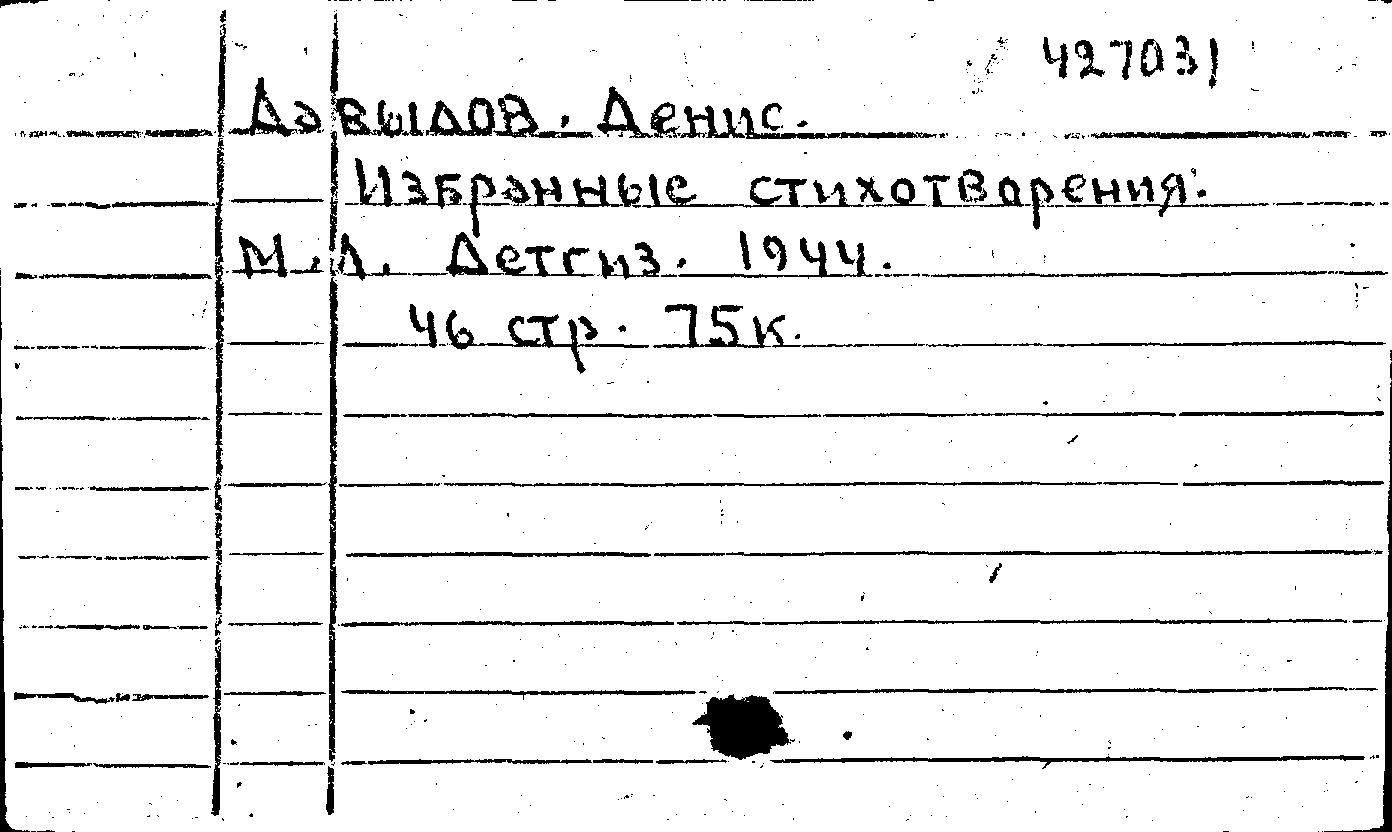 427031
Давыдов. Денис.
Избранные стихотворения.
М.Л. Детгиз. 1944.
46 стр. 75к.